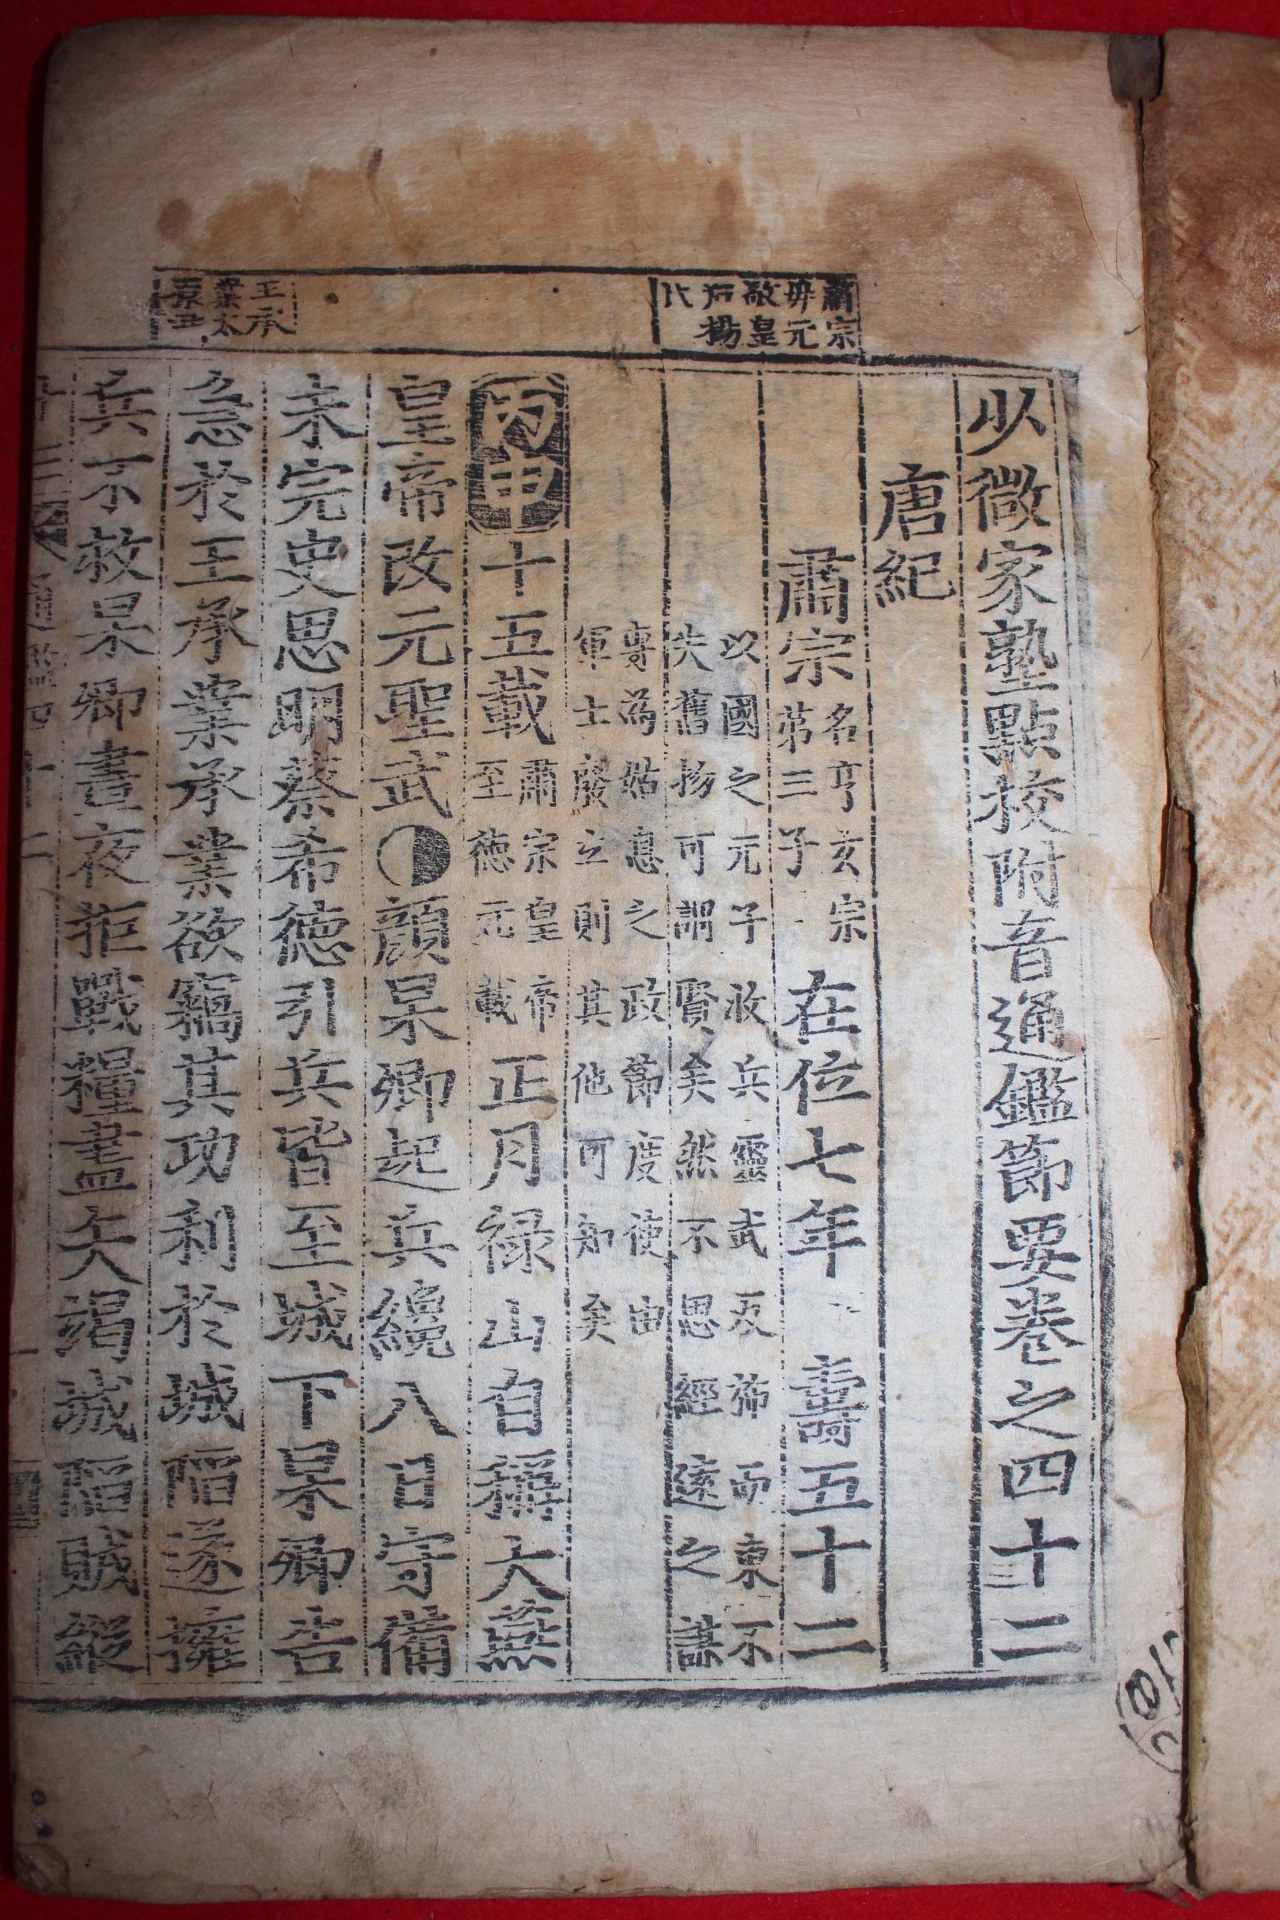 少微家塾點校附音通鑑節要卷之四十二
唐紀
肅宗名亨玄宗第三子在位七年 壽五十二
以國之元子收兵靈武反斾而東不失舊物可謂賢矣然不思經遠之謀
專為姑息之政節度使由軍士廢立則其他可知矣
丙申十五載肅宗皇帝至德元載正月祿山自稱大燕
皇帝改元聖武顔杲卿起兵纔八日守備
未完史思明蔡希德引兵皆至城下杲卿告
急於王承業承業欲竊其功利於城陷遂擁
兵不救杲卿晝夜拒戰糧盡矢竭城陷賊縱
肅宗
毋元
敬皇
后楊
代
王承
業太
原尹